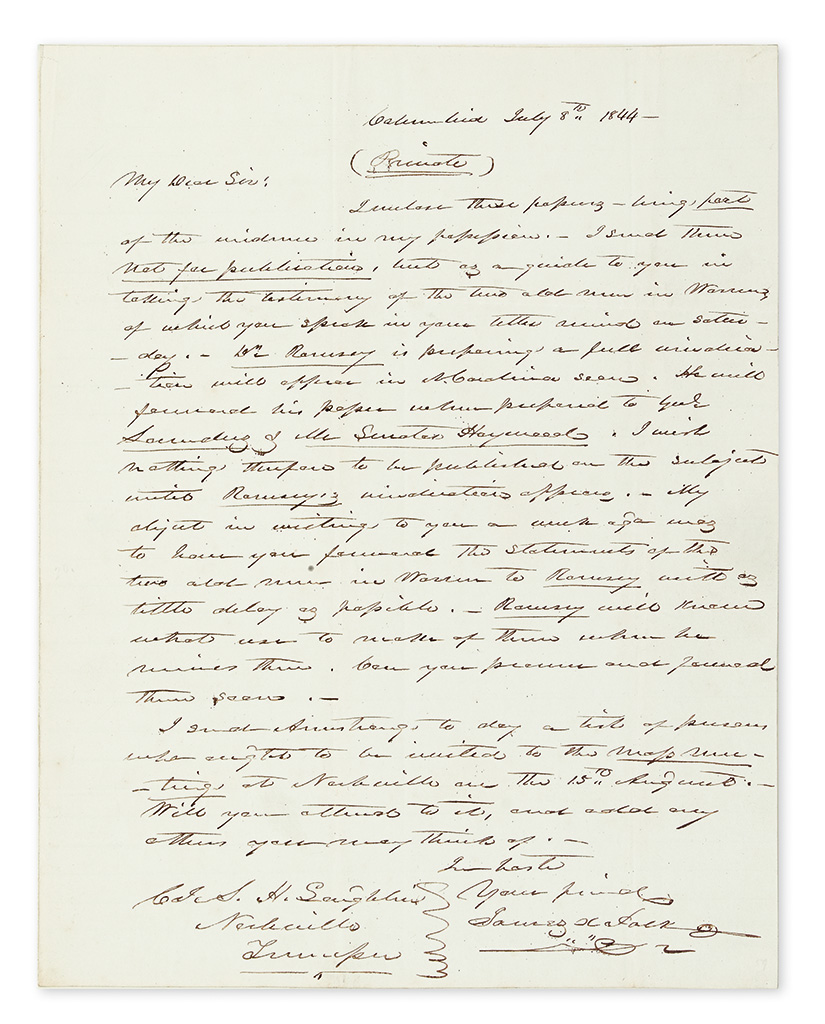 Columbia July 8th 1844 –
(Private)
My Dear Sir:
I enclose these papers – being part
of the evidence in my possession. – I send them
not for publication, but as a guide to you in
taking the testimony of the two old men in Warren,
of which you speak in your letter recd on satur-
-day. – Dr Ramsey is preparing a full vindica-
-tion will appear in N. Carolina soon. He will
forward his paper when prepared to
Saunders & Mr Senator Haywood. I wish
nothing therefore to be published on the subject
until Ramsey's vindication appears. – My
object in writing to you a week ago was
to have you forward the statements of the
two old men in Warren to Ramsey with as
little delay as possible. – Ramsey will know
what use to make of them when he
receives them. Can you procure and forward
them soon. –
I send Armstrong to day a list of persons
who ought to be invited to the Mass mee-
-ting at Nashville on the 15th August. –
Will you attend to it, and add any
others you may think of. –
In haste
Your friend
Col. S. H. Laughlin
James K. Polk
Nashville
Tennessee